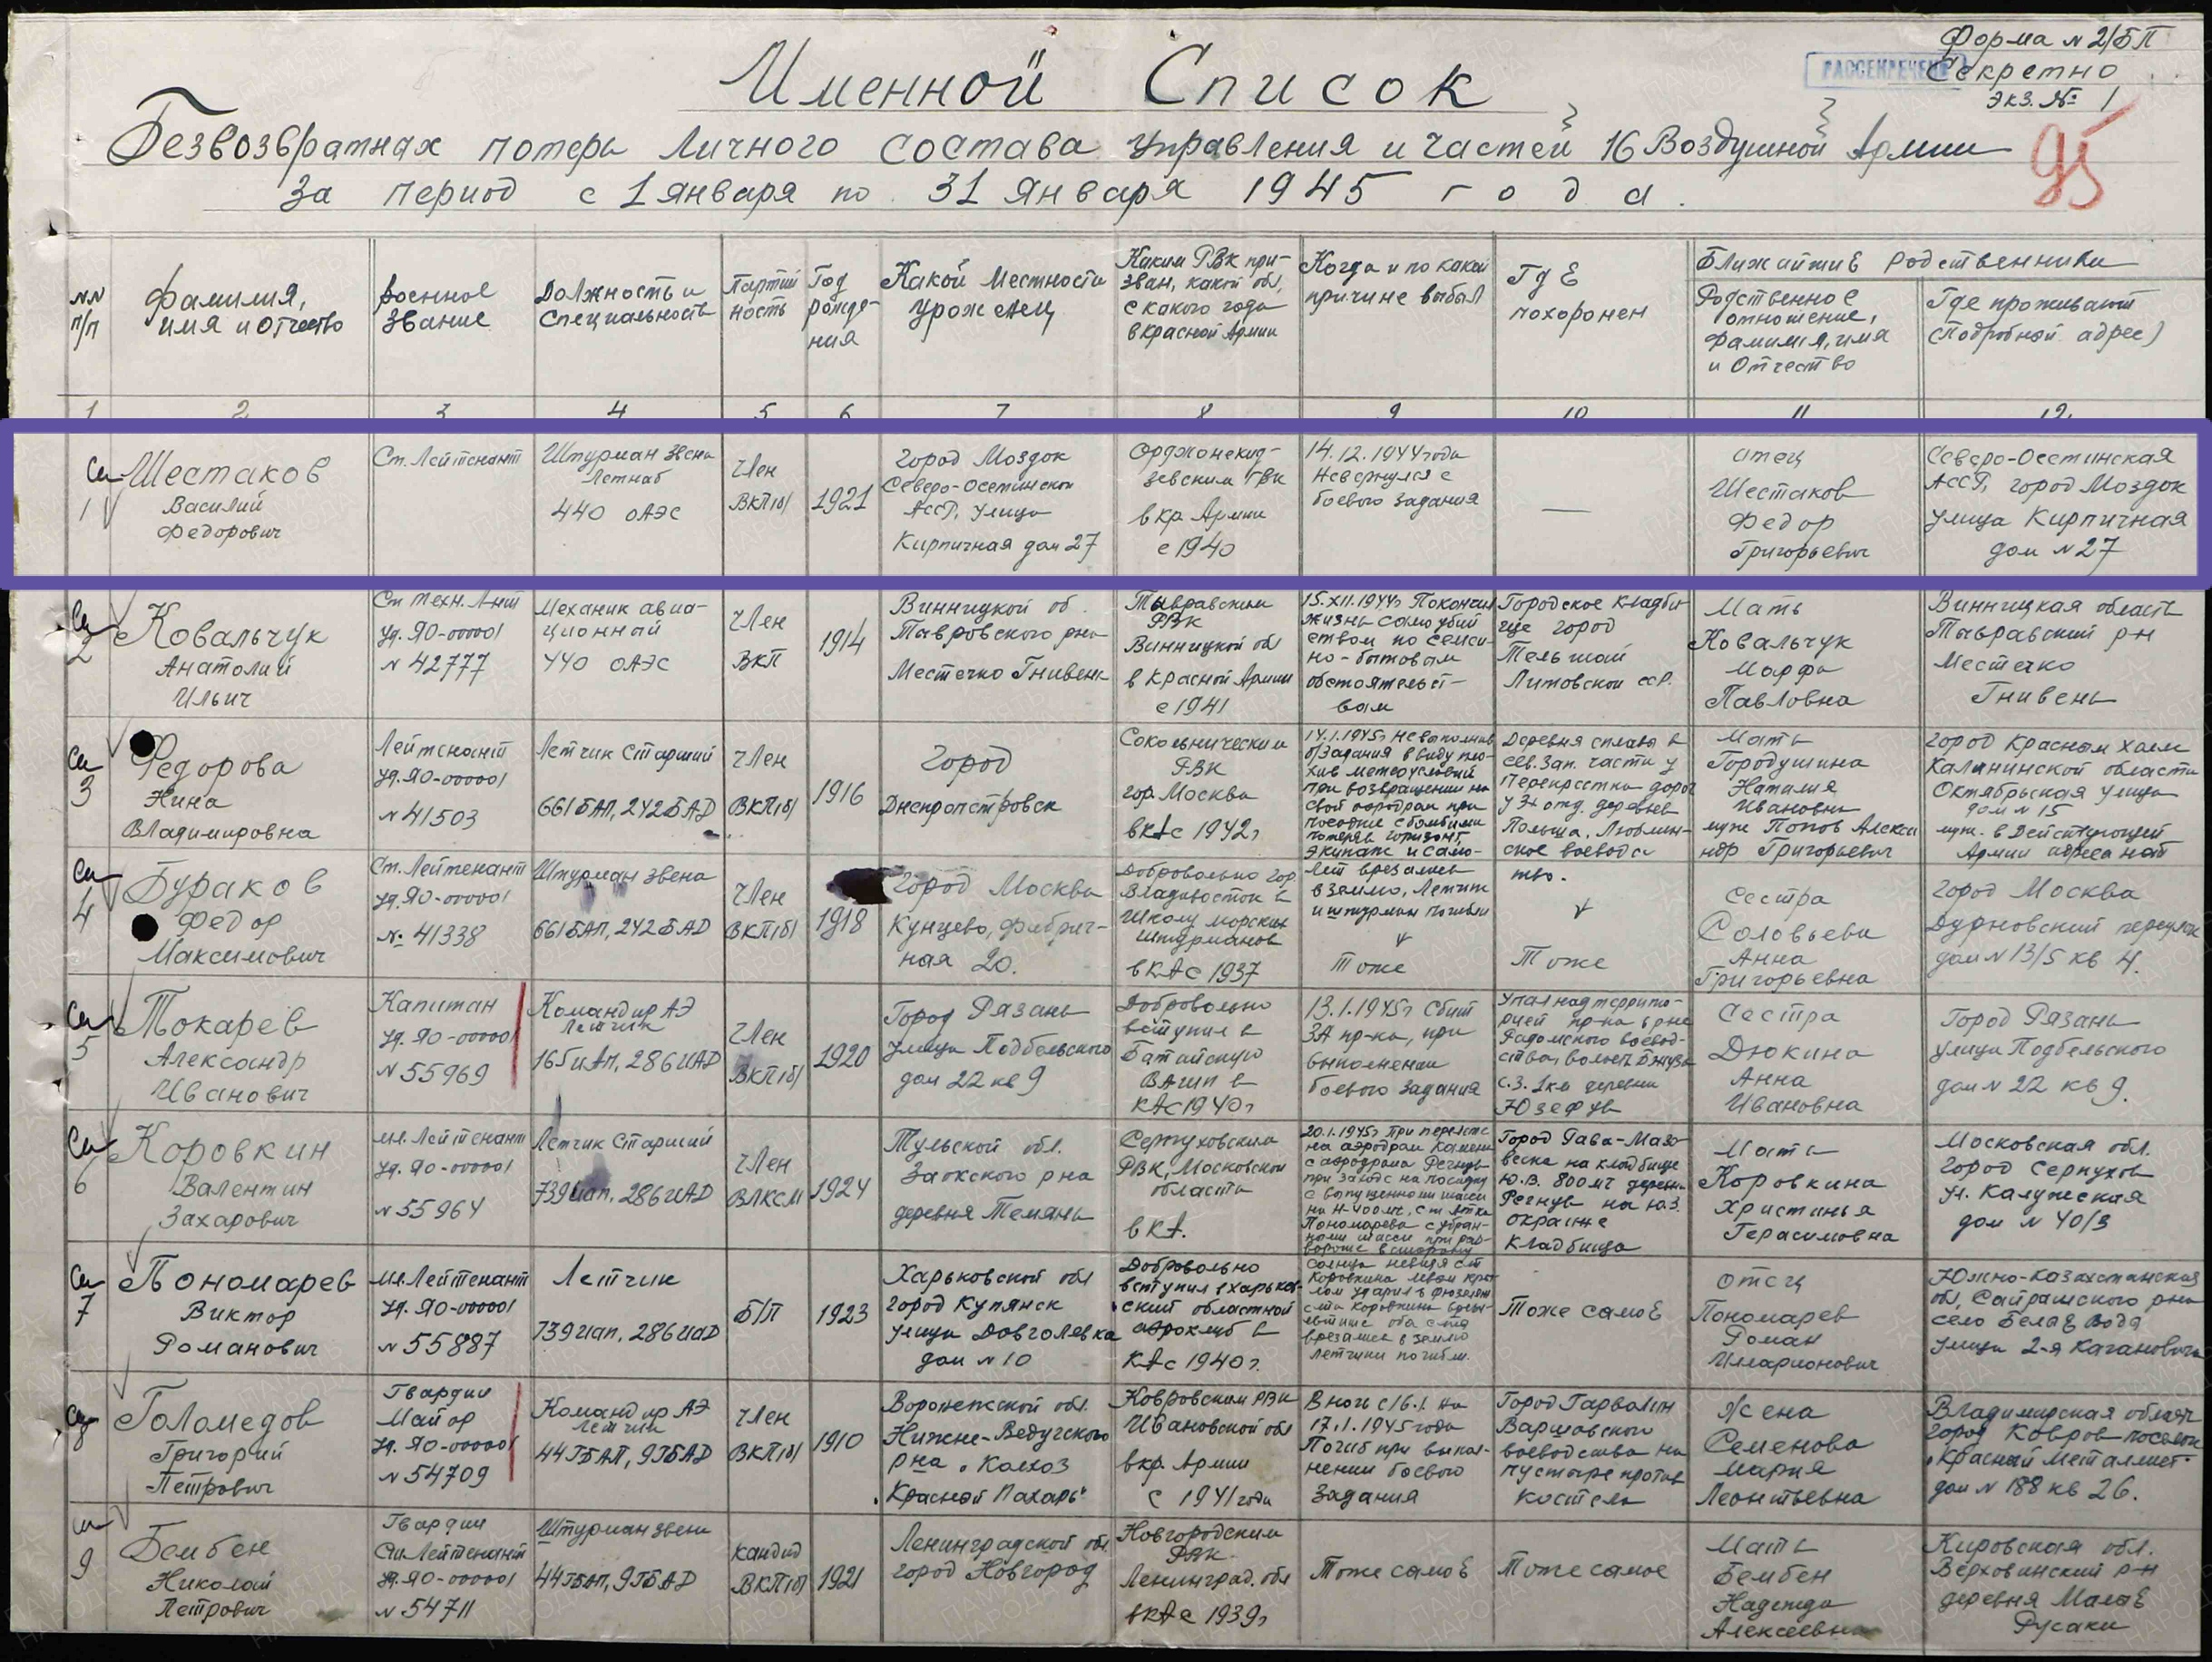 Форма № 2/БП
РАССЕКРЕЧЕНО
Секретно
Экз. № 1
95
Именной Список
Безвозвратных потерь личного состава управления и частей 16 Воздушной Армии
за период с 1 января по 31 января 1945 года.
№№ п/п
Фамилия,
имя и отчество
Военное
звание
Должность и
специальность
Партий
ность
Год
рожде-
ния
Какой местности
урожeнец
Каким РВК при-
зван, какой обл,
с какого года
в Красной Армии
Когда и по какой
причине выбыл
Где
похоронен
Ближайшие родственники
Родственное
отношение,
фамилия, имя
и отчество
Где проживают
(подробной адрес)
1 2 3 4 5 6 7 8 9 10 11 12
1
Шестаков
Василий
Федорович
Ст. Лейтенант
Штурман звена
Летнаб
440 ОАЭС
Член
ВКП(б)
1921
Город Моздок
Северо-Осетинской
АССР, улица
Кирпичная дом 27
Орджоникид-
зевским ГВК
в кр. Армии
с 1940
14.12.1944 года
Не вернулся с
боевого задания
—
отец
Шестаков
Федор
Григорьевич
Северо-Осетинская
АССР, город Моздок
улица Кирпичная
дом № 27
2
Ковальчук
Анатолий
Ильич
Ст. техн. Лнт
уд. ЯО-00001
№ 42777
Механик авиа-
ционный
440 ОАЭС
Член
ВКП
1914
Винницкой об.
Тавровского рна
Местечко Гнивень
Тывравским
РВК
Винницкой обл
в Красной Армии
с 1941
15.XII.1944г Покончил
жизнь самоубий
ством по семей-
но-бытовым
обстоятельст-
вам
Городское кладби
ще город
Тельшай
Литовской сср.
Мать
Ковальчук
Марфа
Павловна
Винницкая область
Тывравский р-н
Местечко
Гнивень
3
Федорова
Нина
Владимировна
Лейтенант
уд. ЯО-00001
№ 41503
Летчик старший
661 БАП, 242 БАД
Член
ВКП(б)
1916
Город
Днепропетровск
Сокольническим
РВК
гор. Москва
в КА с 1942г
14.1.1945г Не выполнив
б/задания ввиду пло-
хих метеоусловий
при возвращении на
свой аэродром при
посадке с бомбами
потерял горизонт,
экипаж и само-
лет врезались
в землю, Летчик
и штурман погибли
Деревня
сев. зап. части у
перекрестка дорог
деревень
Польша, Люблин-
ское воеводс
тво.
Мать
Городушина
Наталия
Ивановна
муж Попов Алекса
ндр Григорьевич
город Красный Холм
Калининской области
Октябрьская улица
дом № 15
муж. в действующей
Армии адреса нет
4
Бураков
Федор
Максимович
Ст. Лейтенант
уд. ЯО-00001
№ 41338
Штурман звена
661 БАП, 242 БАД
Член
ВКП(б)
1918
Город Москва
Кунцево, Фабрич-
ная 20.
Добровольно гор
Владивосток в
школу морских
штурманов
в КА с 1937
Тоже
Тоже
Сестра
Соловьева
Анна
Григорьевна
город Москва
Дурновский переулок
дом № 13/5 кв 4.
5
Токарев
Александр
Иванович
Капитан
уд. ЯО-00001
№ 55969
Командир АЭ
Летчик
165 иАп, 286 иАД
Член
ВКП(б)
1920
Город Рязань
улица Подбельского
дом 22 кв 9
Добровольно
вступил в
Батайскую
ВАШП в
КА с 1940г
13.1.1945г Сбит
ЗА пр-ка, при
выполнении
боевого задания
Упал над террито-
рией пр-ка в р-не
Радомского воевод-
ства,
с.з. 1км деревни
Юзефув
Сестра
Дюкина
Анна
Ивановна
Город Рязань
улица Подбельского
дом № 22 кв 9.
6
Коровкин
Валентин
Захарович
мл. Лейтенант
уд. ЯО-00001
№ 55964
Летчик Старший
739 иап, 286 иАД
Член
ВЛКСМ
1924
Тульской обл.
Заокского р на
деревня Темянь
Серпуховским
РВК, Московской
области
в КА.
20.1.1945г При перелете
на аэродром Камень
с аэродрома Регнув
при заходе на посадку
с выпущенными шасси
на Н-400 мт, с-т л-тка
Пономарева с убран-
ными шасси при раз-
вороте в сторону
солнца не видя с-т
Коровкина левым кры-
лом ударил в фюзеляж
с-та Коровкина
оба с-та
врезались в землю
Летчики погибли.
Город Рава-Мазо-
вецка на кладбище
Ю.В. 800 мт деревн.
Регнув на ю.з.
окраине
кладбища
Мать
Коровкина
Христинья
Герасимовна
Московская обл.
город Серпухов
ул. Калужская
дом № 40/3
7
Пономарев
Виктор
Романович
мл. Лейтенант
уд. ЯО-00001
№ 55887
Летчик
739 иап, 286 иад
Б/П
1923
Харьковской обл
город Купянск
улица Довголевка
дом № 10
Добровольно
вступил в Харьков-
ский областной
аэроклуб в
КА с 1940г.
Тоже самое
отец
Пономарев
Роман
Илларионович
Южно-Казахстанская
обл, Сайрамского рна
село Белая Вода
улица 2-я Кагановича
8
Голомедов
Григорий
Петрович
Гвардии
Майор
уд. ЯО-00001
№ 54709
Командир АЭ
Летчик
44 ГБАП, 9 ГБАД
Член
ВКП(б)
1910
Воронежской обл.
Нижне-Ведугского
р на, Колхоз
„Красной Пахарь"
Ковровским РВК
Ивановской обл
в кр. Армии
с 1941 года
В ночь с 16.1. на
17.1.1945 года
Погиб при выпол-
нении боевого
задания
Город Гарволин
Варшавского
воеводства на
пустыре против
костела
Жена
Семенова
Мария
Леонтьевна
Владимирская область
город Ковров поселок
„Красный металлист"
дом № 188 кв 26.
9
Бембен
Николай
Петрович
Гвардии
Ст. Лейтенант
уд. ЯО-00001
№ 54711
Штурман звена
44 ГБАП, 9 ГБАД
кандид
ВКП(б)
1921
Ленинградской обл
город Новгород
Новгородским
РВК
Ленинград. обл
в КА с 1939г
Тоже самое
Тоже самое
Мать
Бембен
Надежда
Алексеевна
Кировская обл.
Верховинский р-н
деревня Малые
Русаки